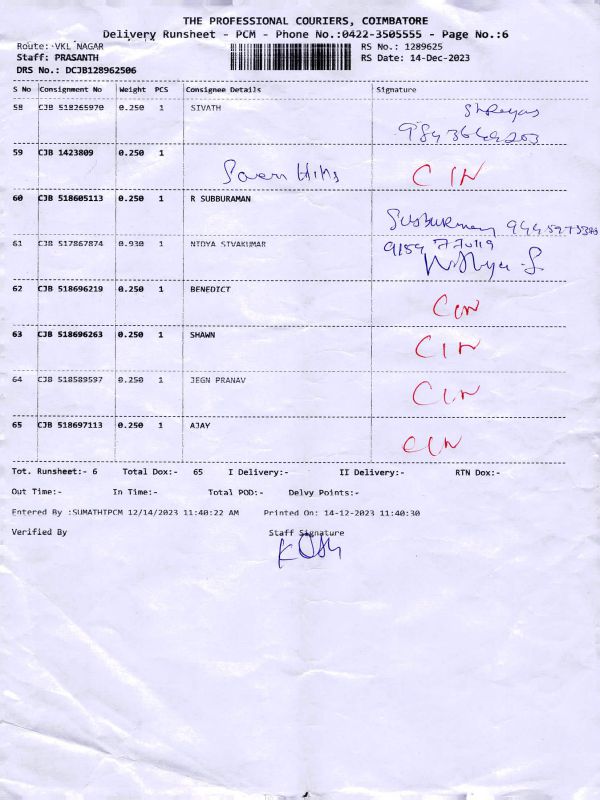 THE PROFESSIONAL COURIERS, COIMBATORE
Delivery Runsheet - PCM - Phone No.:0422-3505555 - Page No.:6
Route: VKL NAGAR RS No.: 1289625
Staff: PRASANTH RS Date: 14-Dec-2023
DRS No.: DCJB128962506
S No Consignment No Weight PCS Consignee Details Signature
58 CJB 518265970 0.250 1 SIVATH Shreyas
59 CJB 1423809 0.250 1
Seven Hills CIN
60 CJB 518605113 0.250 1 R SUBBURAMAN
Subburaman
61 CJB 517867874 0.930 1 NIDYA SIVAKUMAR
Nidhya S
62 CJB 518696219 0.250 1 BENEDICT
CIN
63 CJB 518696263 0.250 1 SHAWN CIN
64 CJB 518589597 0.250 1 JEGN PRANAV
CIN
65 CJB 518697113 0.250 1 AJAY
CIN
Tot. Runsheet:- 6 Total Dox:- 65 I Delivery:- II Delivery:- RTN Dox:-
Out Time:- In Time:- Total POD:- Delvy Points:-
Entered By :SUMATHIPCM 12/14/2023 11:40:22 AM Printed On: 14-12-2023 11:40:30
Verified By Staff Signature